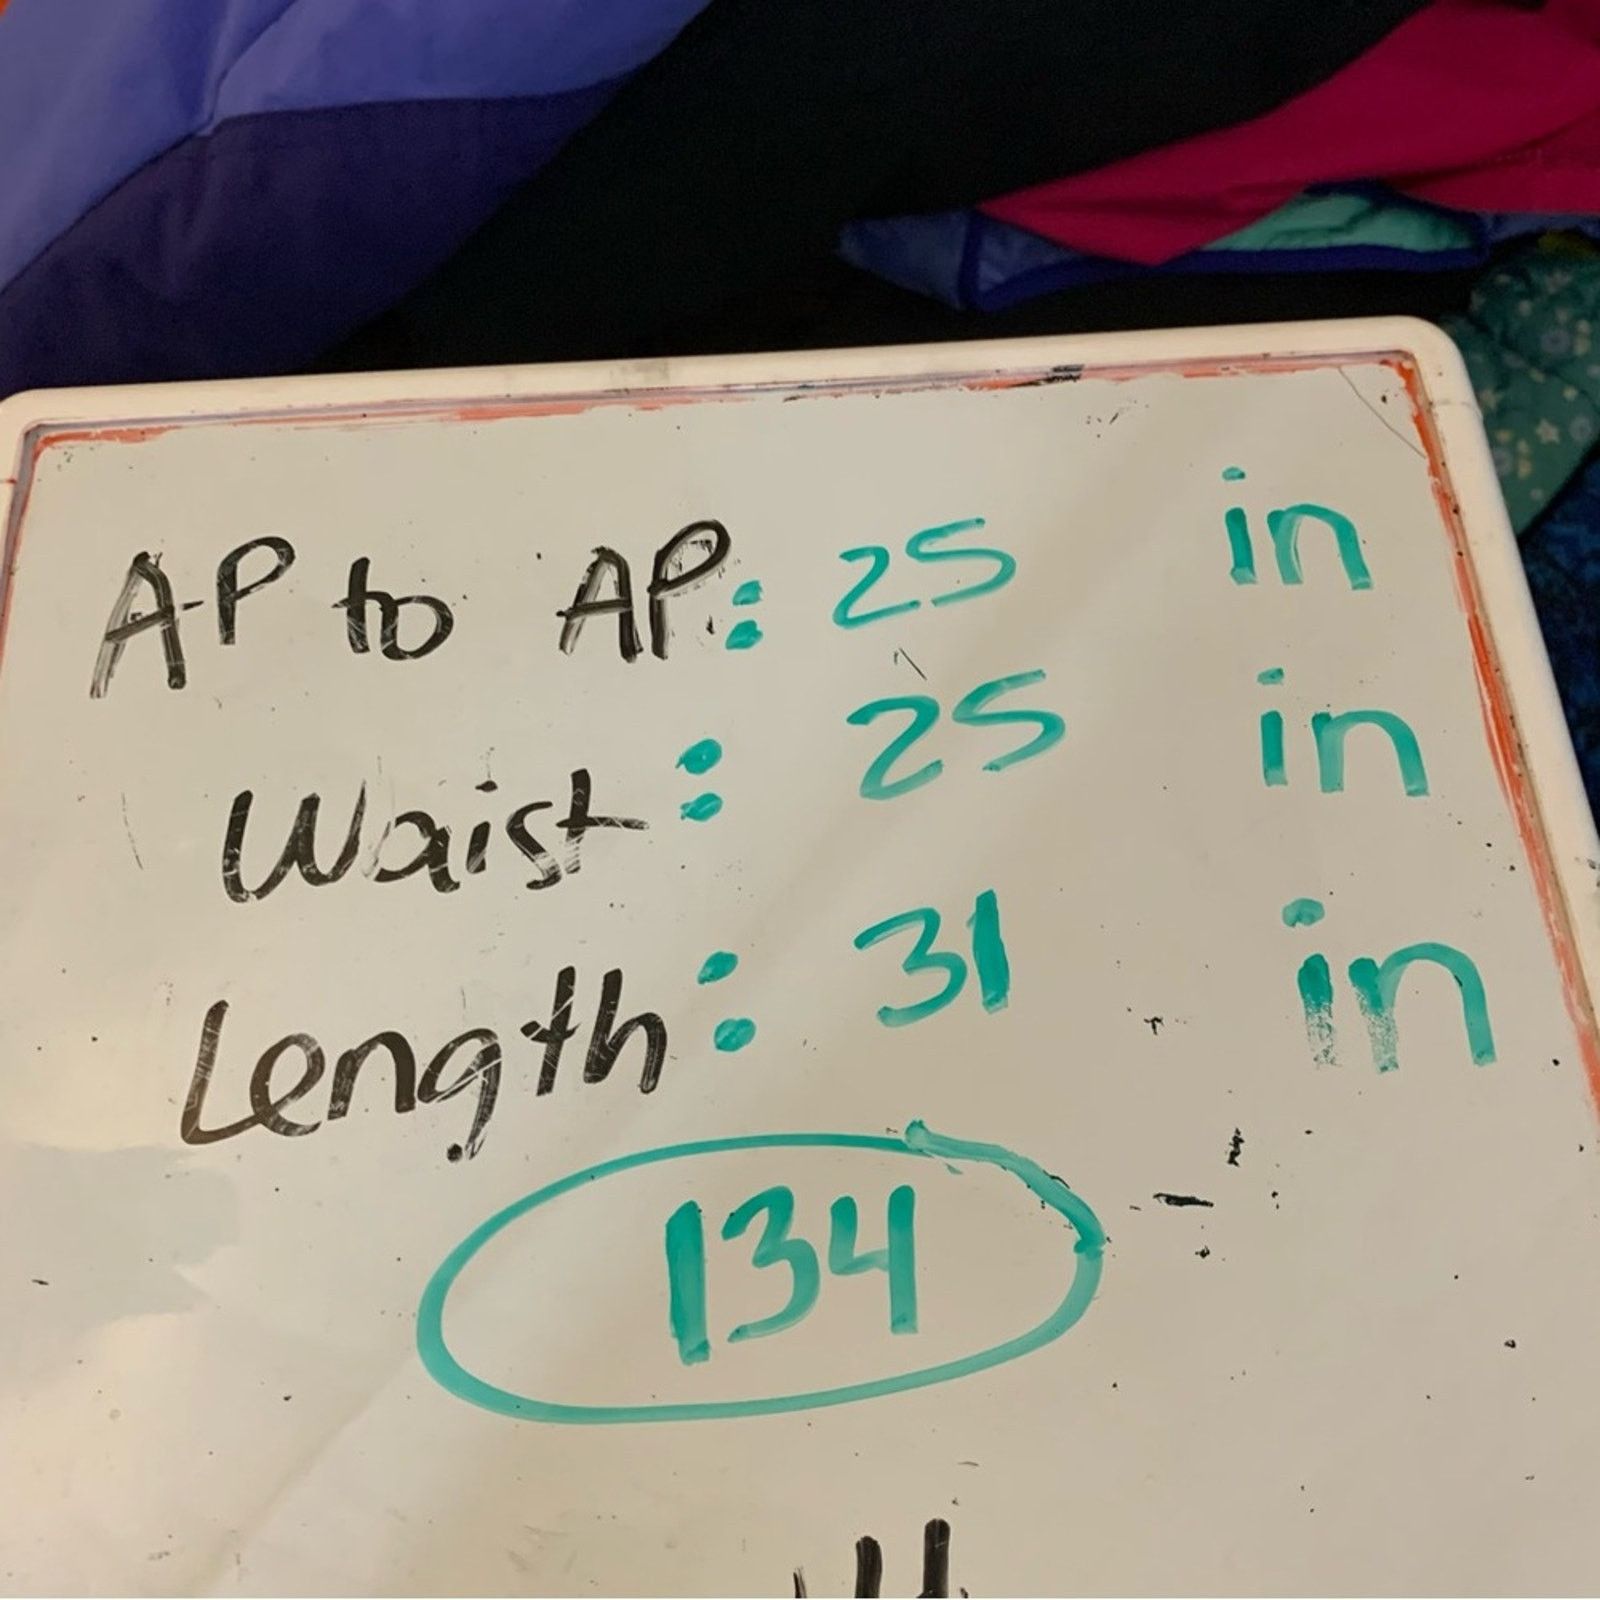 AP to AP: 25 in
Waist: 25 in
Length: 31 in
134